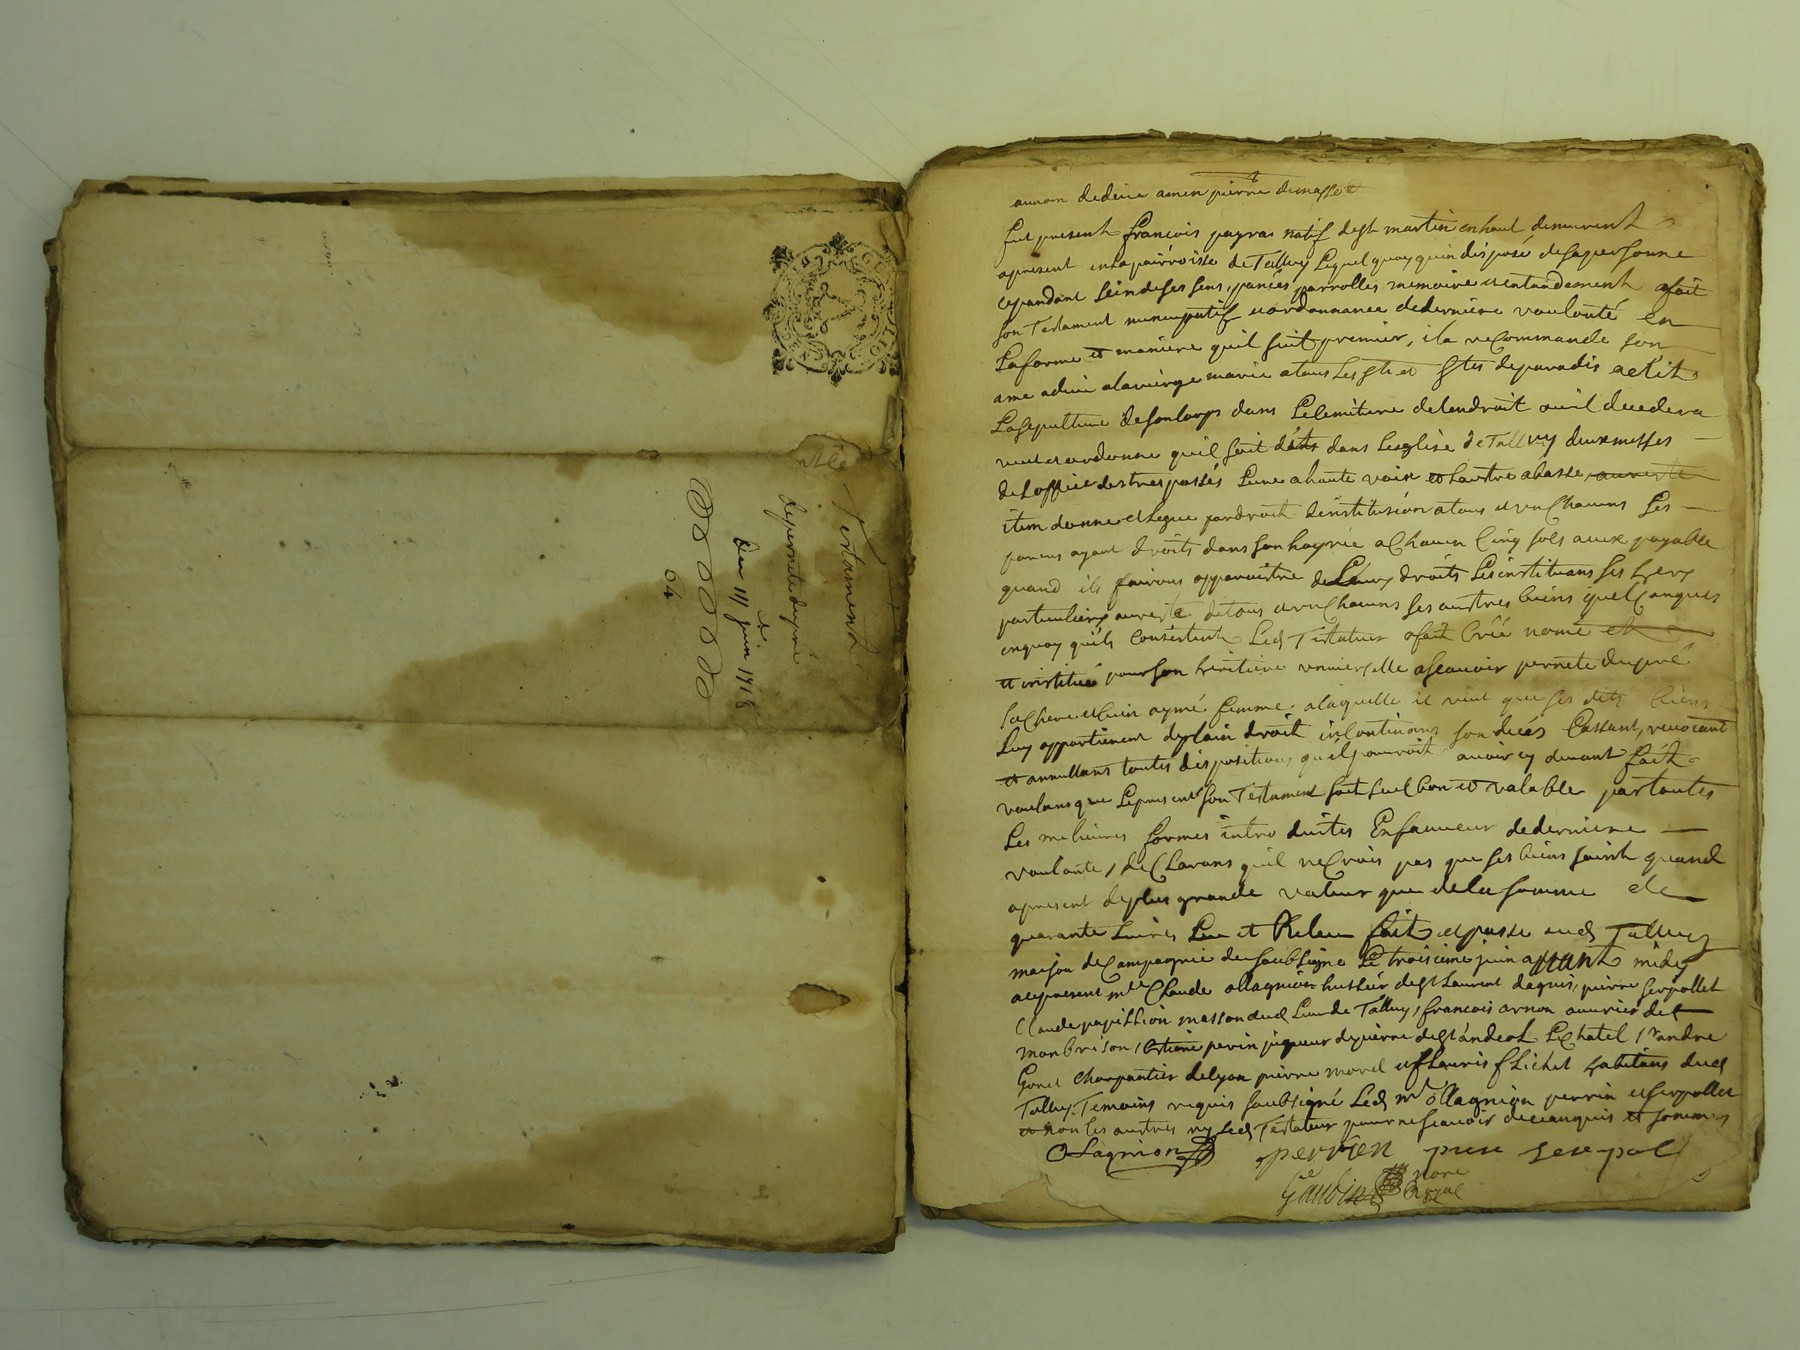 Testament
de pernette dupré
du 3 juin 1718
au nom de dieu amen pierre
fut present françois payra natif de st martin en haut demeurent
apresent en la pairroisse de Talluy Lequel quoy quindisposé de sa personne
cepandant sein de ses sens, pancés parrolles memoire et entandement a fait
son Testament nuncupatif et ordonnance de derniere voulonté en
La forme et maniere quil suit premier, il a recommande son
ame a dieu a la vierge marie a tous Les sts et stes de paradis a elit
La sepulture de son corps dans Le cemitiere de lendroit ou il decedera
veut et ordonne quil soit dits dans Lesglise de Talluy deux messes
de Loffice des trespassés Lune a haute voix et Lautre a basse
item donne et Legue par droit dinstitusion a tous et un chacuns Les
parens ayant droits dans son hoyrie a chacun cinq sols a eux payable
quand ils fairons apparoitre de Leurs droits Les instituans ses hers
particuliers au reste de tous et un chacuns ses austres biens quelconques
en quoy quils consistent Led Testateur a fait créé nomé et
et institué pour son heritiere universelle a scavoir pernete dupré
sa chere et bien aymé femme a laquelle il veut que ses dits biens
Luy appartienent de plain droit incontinans son deces Cassant, revocant
et annullans toutes dispositions quil pourroit avoir cy devant fait
voulans que Le present son Testament soit seul bon et valable par toutes
Les melieures formes introduites En faveur de derniere
voulonte, declarans quil ne crois pas que ses biens soint quand
apresent de plus grande valeur que de la somme de
quarante Livres Leu et Releu fait et passe aud Talluy
maison de campagne du soubsigné Le troisieme juin avant midy
en present mre Claude ollagnion hussier de st Laurent dagnis, pierre serpollet
Claude papillion masson dud Lieu de Talluy, francois arnon ouvrier de
monbrison, Estiene perin piqueur de pierre de st andeol Le chatel, sr andre
Gonet charpantier de Lyon pierre morel et fleuris fLichet habitans dud
Talluy Temoins requis soubsigné Led mr ollagnion perrin et serpollet
et non les austres ny Led Testateur pour ne scavoir de ce enquis et sommes
OLagnion perrien piere serepol
Gaudin nore Royal